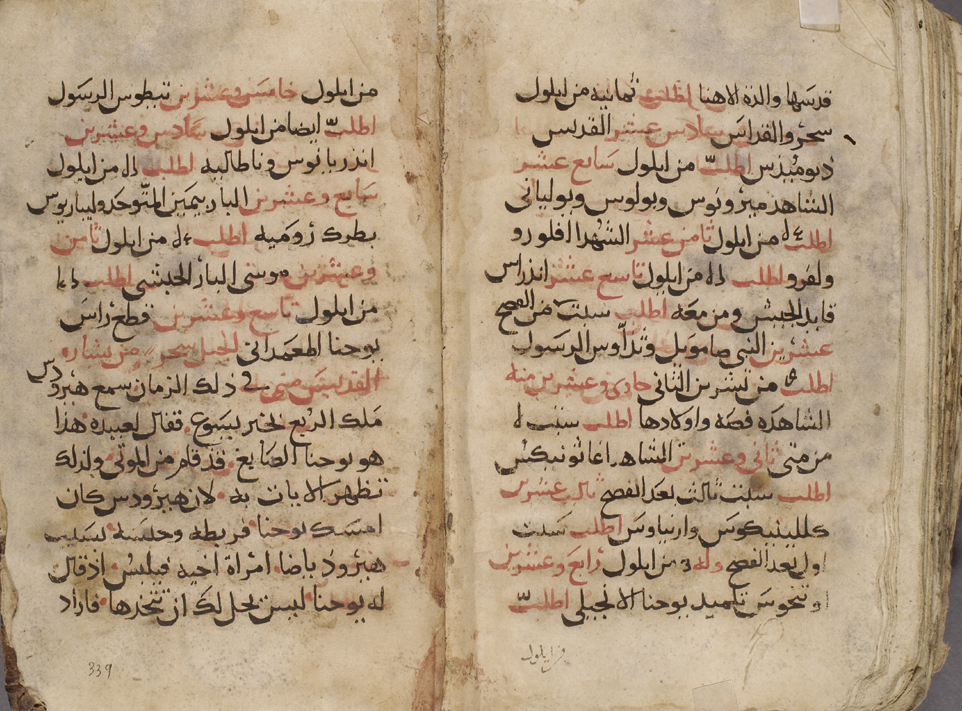 قدسها والدة الاهنا اطلب ثمانيه من ايلول
سحر والقداس سادس عشر القديس
ديوميذس اطلب من ايلول سابع عشر
الشاهد ميرونوس وبولوس ويولياني
اطلب من ايلول ثامن عشر الشهدا افلورو
ولفرو اطلب من ايلول تاسع عشر اندراس
قايد الجيش ومن معه اطلب سبت من الفصح
عشرين النبي صامويل وتداوس الرسول
اطلب من تشرين الثاني حادى وعشرين منه
الشاهده فضة واولادها اطلب سبت
من متى ثاني وعشرين الشاهد اغاثونيكس
اطلب سبت ثالث بعد الفصح ثالث عشرين
كللينيكوس وارنياوس اطلب سبت
اول بعد الفصح وله من ايلول رابع وعشرين
اوتيخوس تلميد يوحنا الانجيلى اطلب
من ايلول
من ايلول خامس وعشرين تيطوس الرسول
اطلب ايضا من ايلول سادس وعشرين
اندريانوس وناطاليه اطلب من ايلول
سابع وعشرين البار بيمين المتوحد وليباريوس
بطرك روميه اطلب من ايلول ثامن
وعشرين موسى البار الحبشى اطلب
من ايلول تاسع وعشرين قطع راس
يوحنا المعمدانى انجيل سحر من بشاره
القديس متى فى ذلك الزمان سمع هيرودس
ملك الربع بخبر يسوع فقال لعبيده هذا
هو يوحنا الصابغ قد قام من الموتى ولذلك
تظهر الايات به لان هيرودس كان
امسك يوحنا فربطه وحبسه بسبب
هيروديا امراة اخيه فيلبس اذ قال
له يوحنا ليس يحل لك ان تتخذها فاراد
339